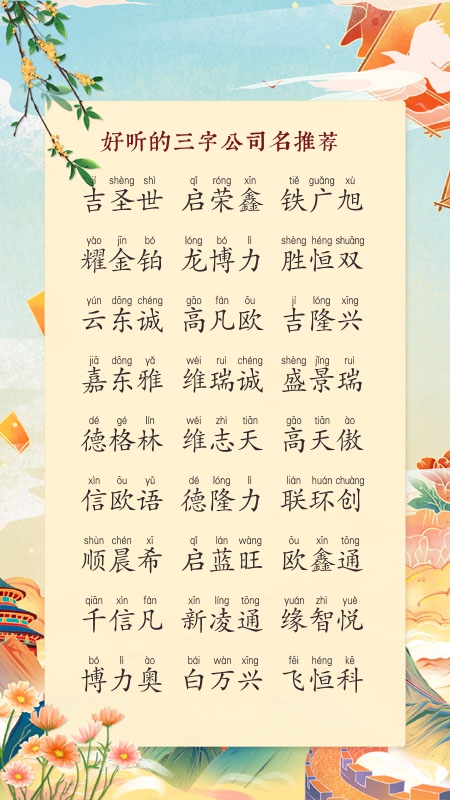 好听的三字公司名推荐
jí shèng shì qǐ róng xīn tiě guǎng xù
吉圣世 启荣鑫 铁广旭
yào jīn bó lóng bó lì shèng héng shuāng
耀金铂 龙博力 胜恒双
yún dōng chéng gāo fán ōu jí lóng xīng
云东诚 高凡欧 吉隆兴
jiā dōng yǎ wéi ruì chéng shèng jǐng ruì
嘉东雅 维瑞诚 盛景瑞
dé gé lín wéi zhì tiān gāo tiān ào
德格林 维志天 高天傲
xìn ōu yǔ dé lóng lì lián huán chuàng
信欧语 德隆力 联环创
shùn chén xī qǐ lán wàng ōu xīn tōng
顺晨希 启蓝旺 欧鑫通
qiān xìn fán xīn líng tōng yuán zhì yuè
千信凡 新凌通 缘智悦
bó lì ào bái wàn xīng fēi héng kē
博力奥 白万兴 飞恒科